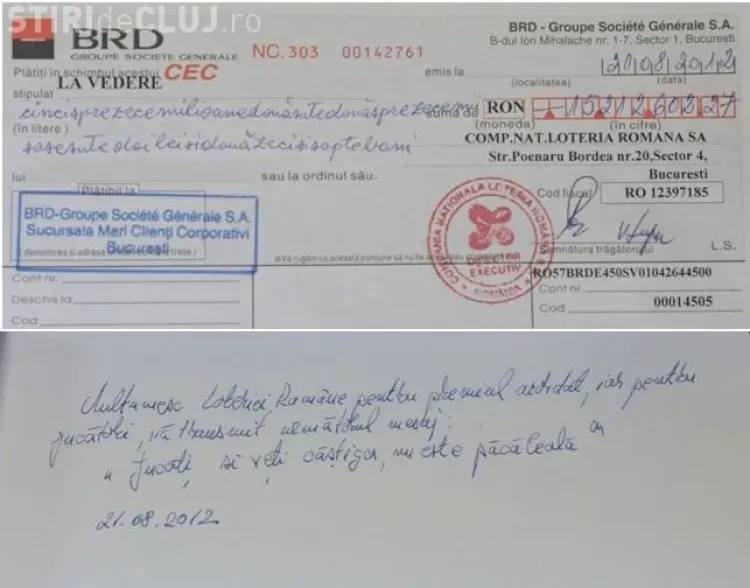 STIRIdeCLUJ.ro
BRD
GROUPE SOCIETE GENERALE
NC. 303 00142761
BRD - Groupe Société Générale S.A.
B-dul Ion Mihalache nr. 1-7, Sector 1, Bucuresti
Plătiți în schimbul acestui CEC
emis la 21 08 2012
(localitatea) (data)
stipulat LA VEDERE
cincisprezecemilioanedouăsutedouăsprezecemii
suma de RON 15212602,27
(în litere) (moneda) (în cifre)
sasesutedoileisidouăzecisisaptebani
COMP.NAT.LOTERIA ROMANA SA
Str.Poenaru Bordea nr.20,Sector 4,
Bucuresti
lui sau la ordinul său.
Cod fiscal RO 12397185
Plătibil la
BRD-Groupe Société Générale S.A.
Sucursala Mari Clienți Corporativi
Bucuresti
COMPANIA NATIONALA LOTERIA ROMANA
DIRECTOR
EXECUTIV
Semnătura trăgătorului L.S.
Cont nr.
RO57BRDE450SV01042644500
Cont nr.
Deschis la
00014505
Cod
Cod
Multumesc Loteriei Române pentru premiul acordat, iar pentru
jucători, vă transmit următorul mesaj:
„Jucați si veți câștiga, nu este păcăleală"
21.08.2012